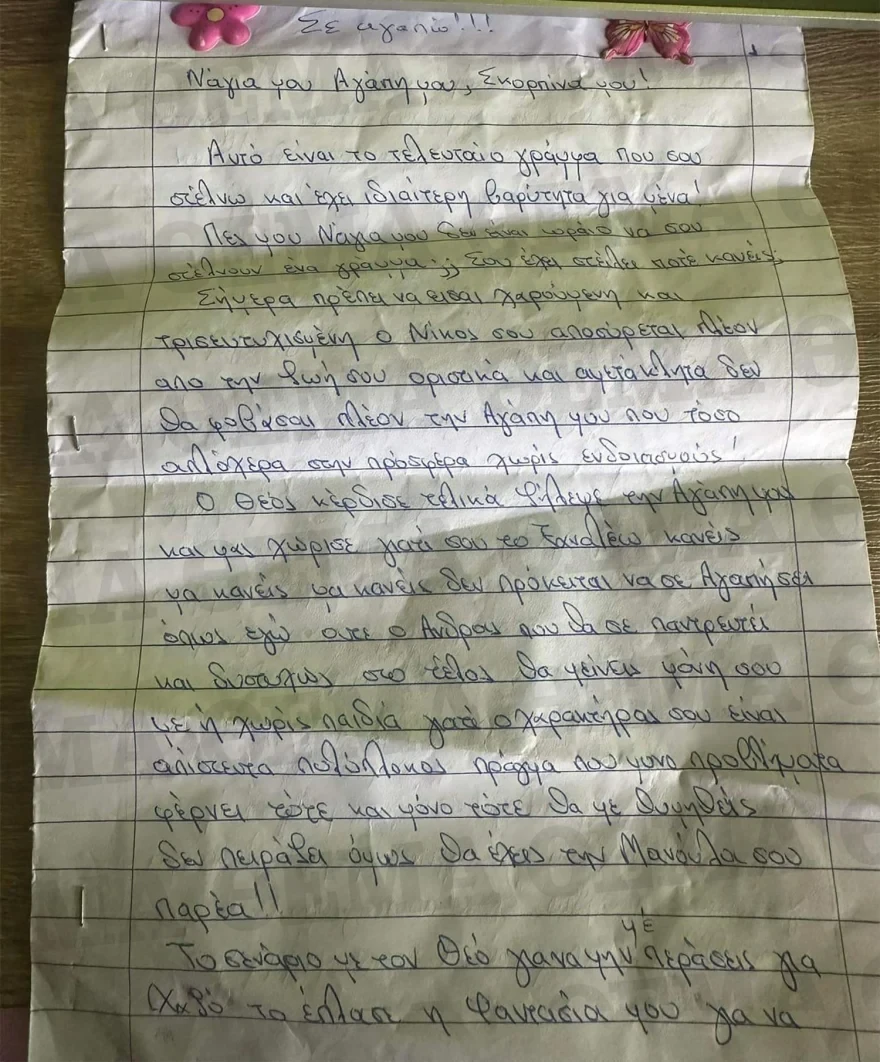 Σε αγαπώ!!!
Νάγια μου Αγάπη μου, Σκορπίνα μου!
Αυτό είναι το τελευταίο γράμμα που σου
στέλνω και έχει ιδιαίτερη βαρύτητα για μένα!
Πες μου Νάγια μου δεν είναι ωραίο να σου
στέλνουν ένα γράμμα;;; Σου έχει στείλει ποτέ κανείς;
Σήμερα πρέπει να εισαι χαρούμενη και
τρισευτυχισμένη ο Νίκος σου αποσύρεται πλέον
απο την ζωή σου οριστικά και αμετάκλητα δεν
θα φοβάσαι πλέον την Αγάπη μου που τόσο
απλόχερα στην πρόσφερα χωρίς ενδοιασμούς!
Ο Θεός κέρδισε τελικά ζήλεψε την Αγάπη μου
και μας χώρισε γιατί σου το ξαναλέω κανείς
μα κανείς μα κανείς δεν πρόκειται να σε Αγαπήσει
όπως εγώ ουτε ο Ανδρας που θα σε παντρευτεί
και δυστυχώς στο τέλος θα μείνεις μόνη σου
με ή χωρίς παιδιά γιατί ο χαρακτήρας σου είναι
απίστευτα πολύπλοκος πράγμα που μονο προβλήματα
φέρνει τότε και μόνο τότε θα με θυμηθείς
δεν πειράζει όμως θα έχεις την Μανούλα σου
παρέα!!
Το σενάριο με τον Θεό για να μην με περάσεις για
Χαζό το έπλασε η Φαντασία μου για να